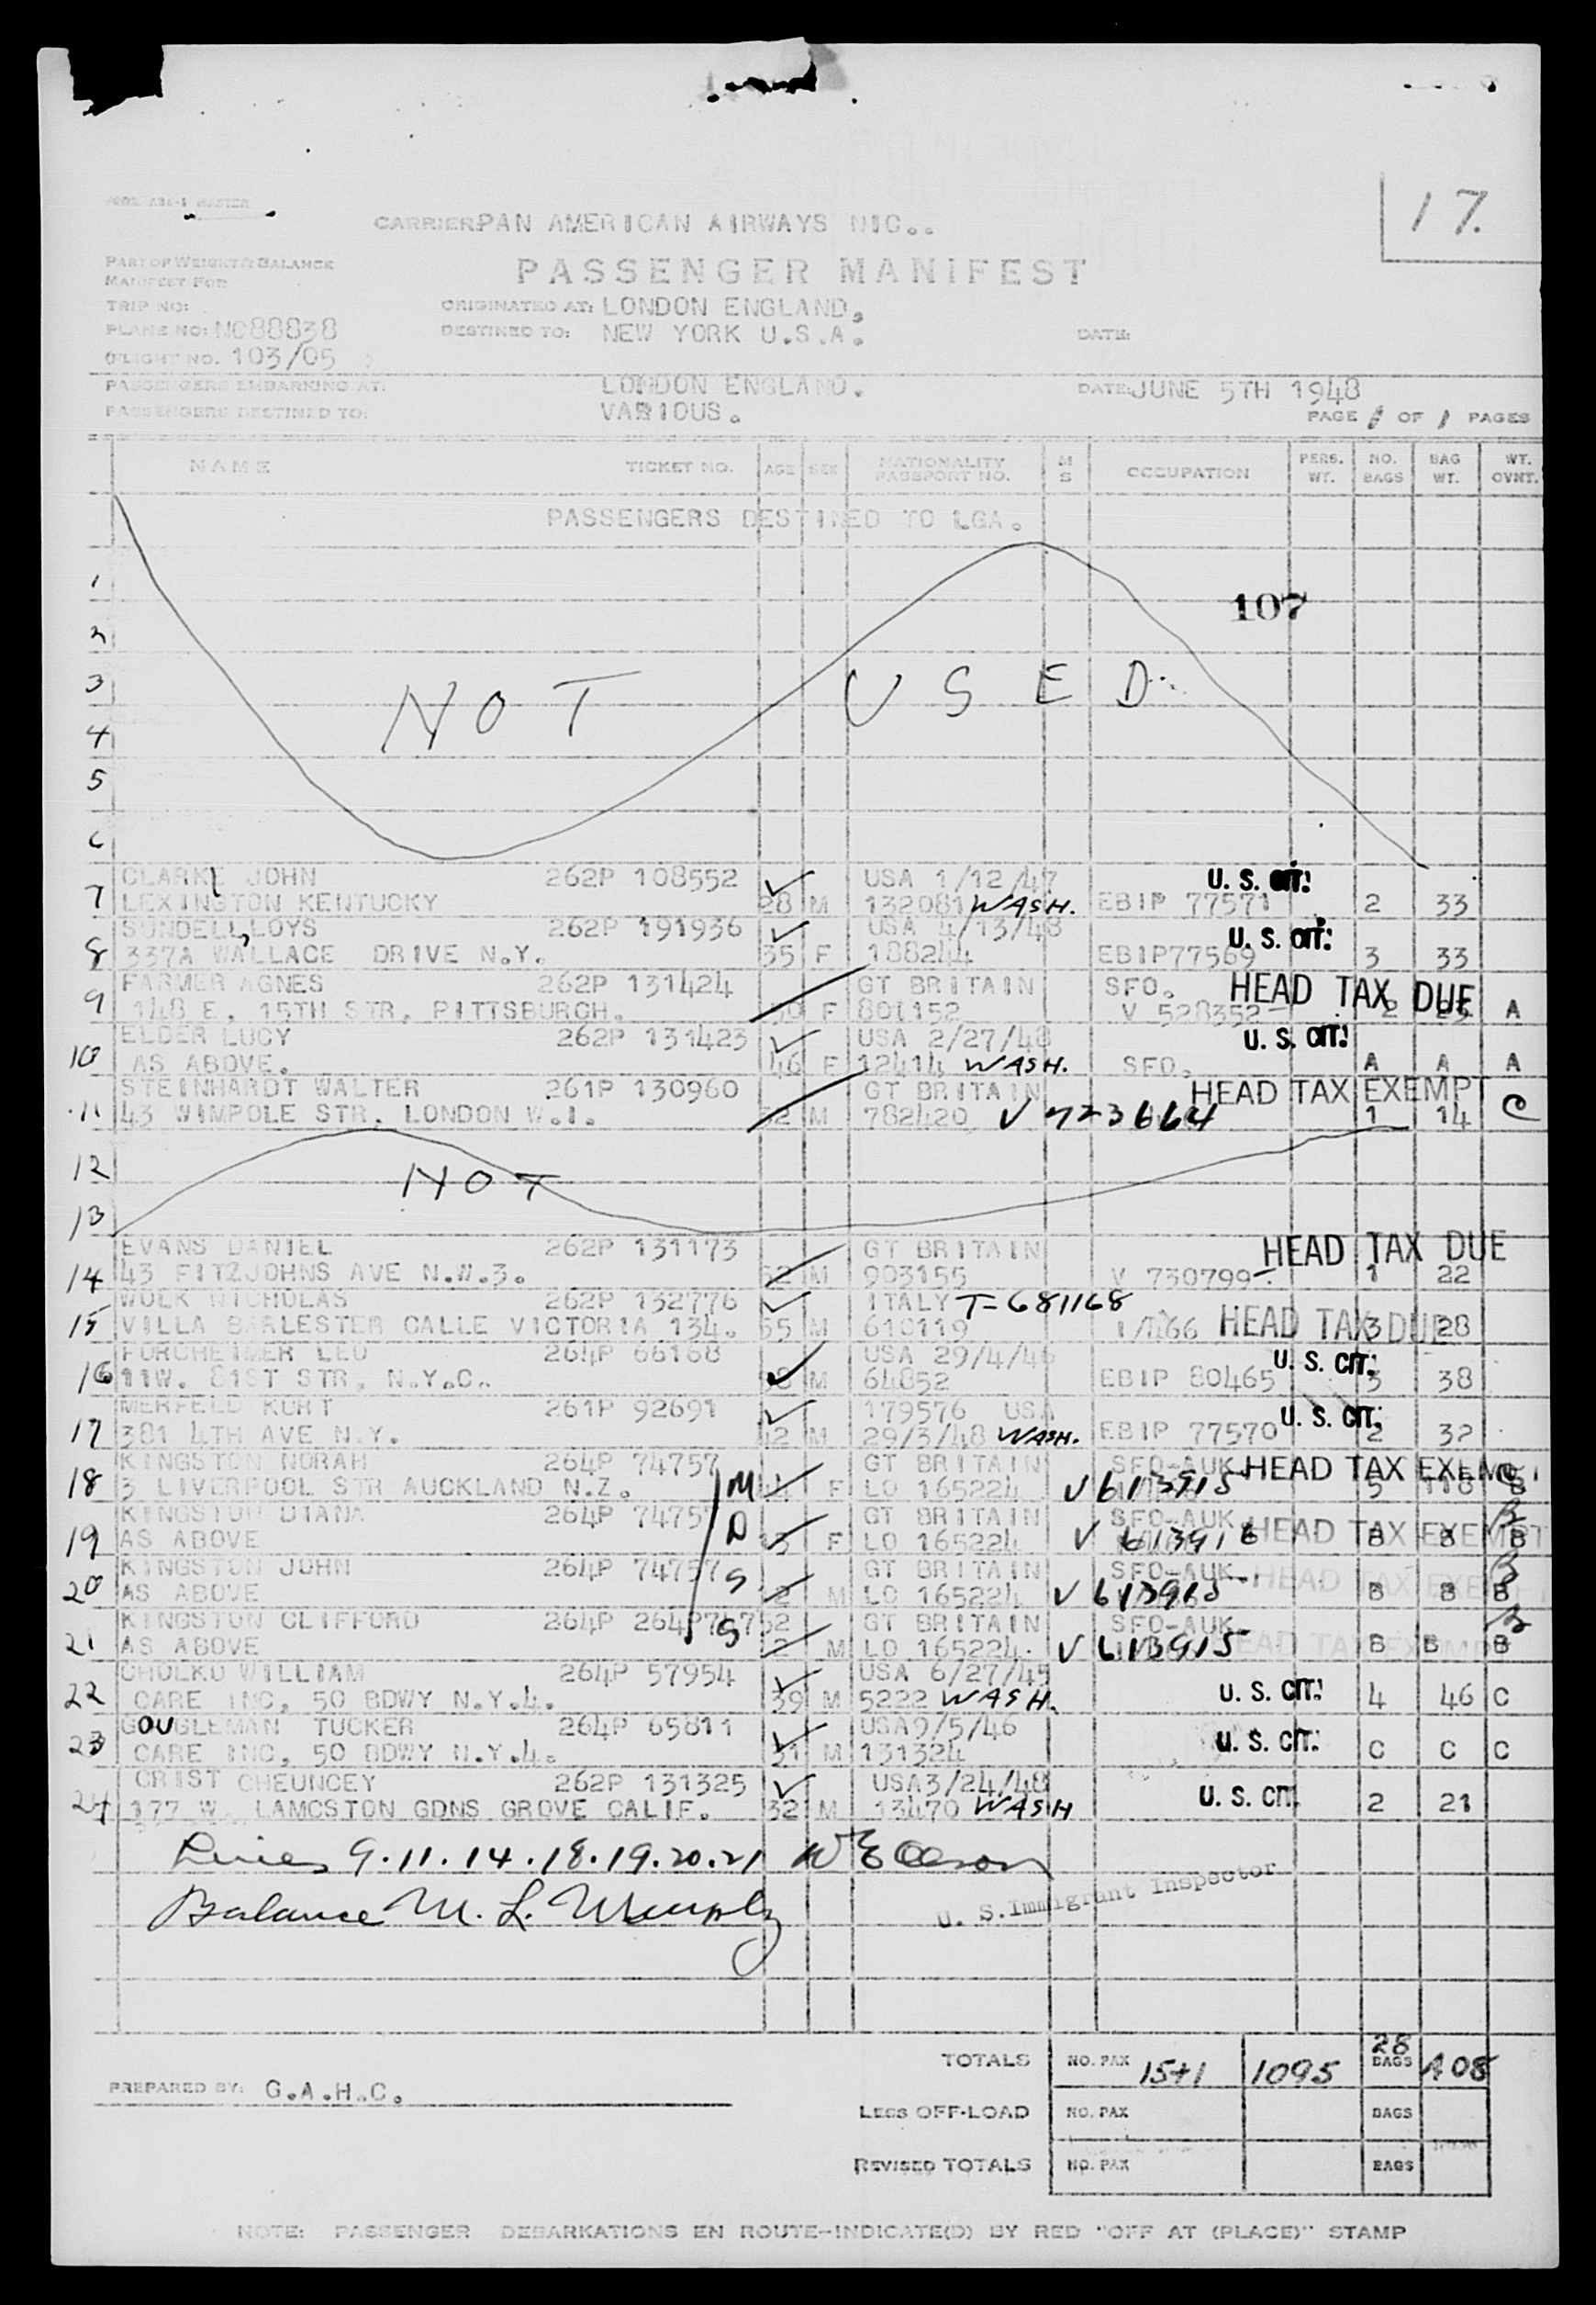 17.
CARRIER: PAN AMERICAN AIRWAYS NIC..
PART OF WEIGHT & BALANCE
MANIFEST FOR
PASSENGER MANIFEST
TRIP NO:
ORIGINATED AT: LONDON ENGLAND,
PLANE NO: NC88838
DESTINED TO: NEW YORK U.S.A.
DATE:
FLIGHT NO. 103/05
PASSENGERS EMBARKING AT: LONDON ENGLAND.
DATE: JUNE 5TH 1948
PASSENGERS DESTINED TO: VARIOUS.
PAGE 1 OF 1 PAGES
NAME TICKET NO. AGE SEX NATIONALITY PASSPORT NO. M S OCCUPATION PERS. WT. NO. BAGS BAG WT. WT. OVNT.
PASSENGERS DESTINED TO LGA.
1
107
2
3
NOT USED
4
5
6
CLARKE JOHN 262P 108552 USA 1/12/47 U. S. CIT.
7 LEXINGTON KENTUCKY 28 M 132081 WASH. EBIP 77571 2 33
SUNDELL, LOYS 262P 191936 USA 4/13/48 U. S. CIT.
8 337A WALLACE DRIVE N.Y. 35 F 188244 EBIP77569 3 33
FARMER AGNES 262P 131424 GT BRITAIN SFO. HEAD TAX DUE
9 148 E. 15TH STR, PITTSBURGH. F 801152 V 528352 2 A
ELDER LUCY 262P 131423 USA 2/27/48 U. S. CIT.
10 AS ABOVE. 46 F 12414 WASH. SFO. A A A
STEINHARDT WALTER 261P 130960 GT BRITAIN HEAD TAX EXEMPT
11 43 WIMPOLE STR. LONDON W.1. M 782420 V 723664 1 14 C
12
NOT
13
EVANS DANIEL 262P 131173 GT BRITAIN HEAD TAX DUE
14 43 FITZJOHNS AVE N.W.3. M 903155 V 730799 1 22
NICHOLAS 262P 132776 ITALY T=681168
15 VILLA CALLE VICTORIA 134. 55 M 610119 HEAD TAX DUE 3 28
FORCHEIMER LEO 264P 66168 USA 29/4/46 U. S. CIT.
16 11W. 81ST STR, N.Y.C. M 64852 EBIP 80465 3 38
MERFELD KURT 261P 92691 179576 USA U. S. CIT.
17 381 4TH AVE N.Y. 42 M 29/3/48 WASH. EBIP 77570 2 32
KINGSTON NORAH 264P 74757 GT BRITAIN SFO-AUK HEAD TAX EXEMPT
18 3 LIVERPOOL STR AUCKLAND N.Z. M F LO 165224 V613915 5 118 B
KINGSTON DIANA 264P GT BRITAIN SFO-AUK. B
19 AS ABOVE D F LO 165224 V 613916 HEAD TAX EXEMPT B B B
KINGSTON JOHN 264P 74757 GT BRITAIN SFO-AUK. HEAD TAX EXEMPT B
20 AS ABOVE S M LO 165224 V613915 B B B
KINGSTON CLIFFORD 264P GT BRITAIN SFO-AUK. B
21 AS ABOVE S M LO 165224. V613915 HEAD TAX EXEMPT B B B
CHOLKO WILLIAM 264P 57954 USA 6/27/45
22 CARE INC, 50 BDWY N.Y.4. 39 M 5222 WASH. U. S. CIT. 4 46 C
GOUGLEMAN TUCKER 264P 65811 USA9/5/46
23 CARE INC, 50 BDWY N.Y.4. 31 M 131324 U. S. CIT. C C C
CRIST CHEUNCEY 262P 131325 USA3/24/48
24 177 W. LAMCSTON GDNS GROVE CALIF. 32 M 13470 WASH U. S. CIT. 2 21
Lines 9.11.14.18.19.20.21
Balance M. L.
U. S. Immigrant Inspector
TOTALS NO. PAX 15+1 1095 28 BAGS 408
PREPARED BY: G.A.H.C.
LESS OFF-LOAD NO. PAX BAGS
REVISED TOTALS NO. PAX BAGS
NOTE: PASSENGER DEBARKATIONS EN ROUTE-INDICATE(D) BY RED "OFF AT (PLACE)" STAMP